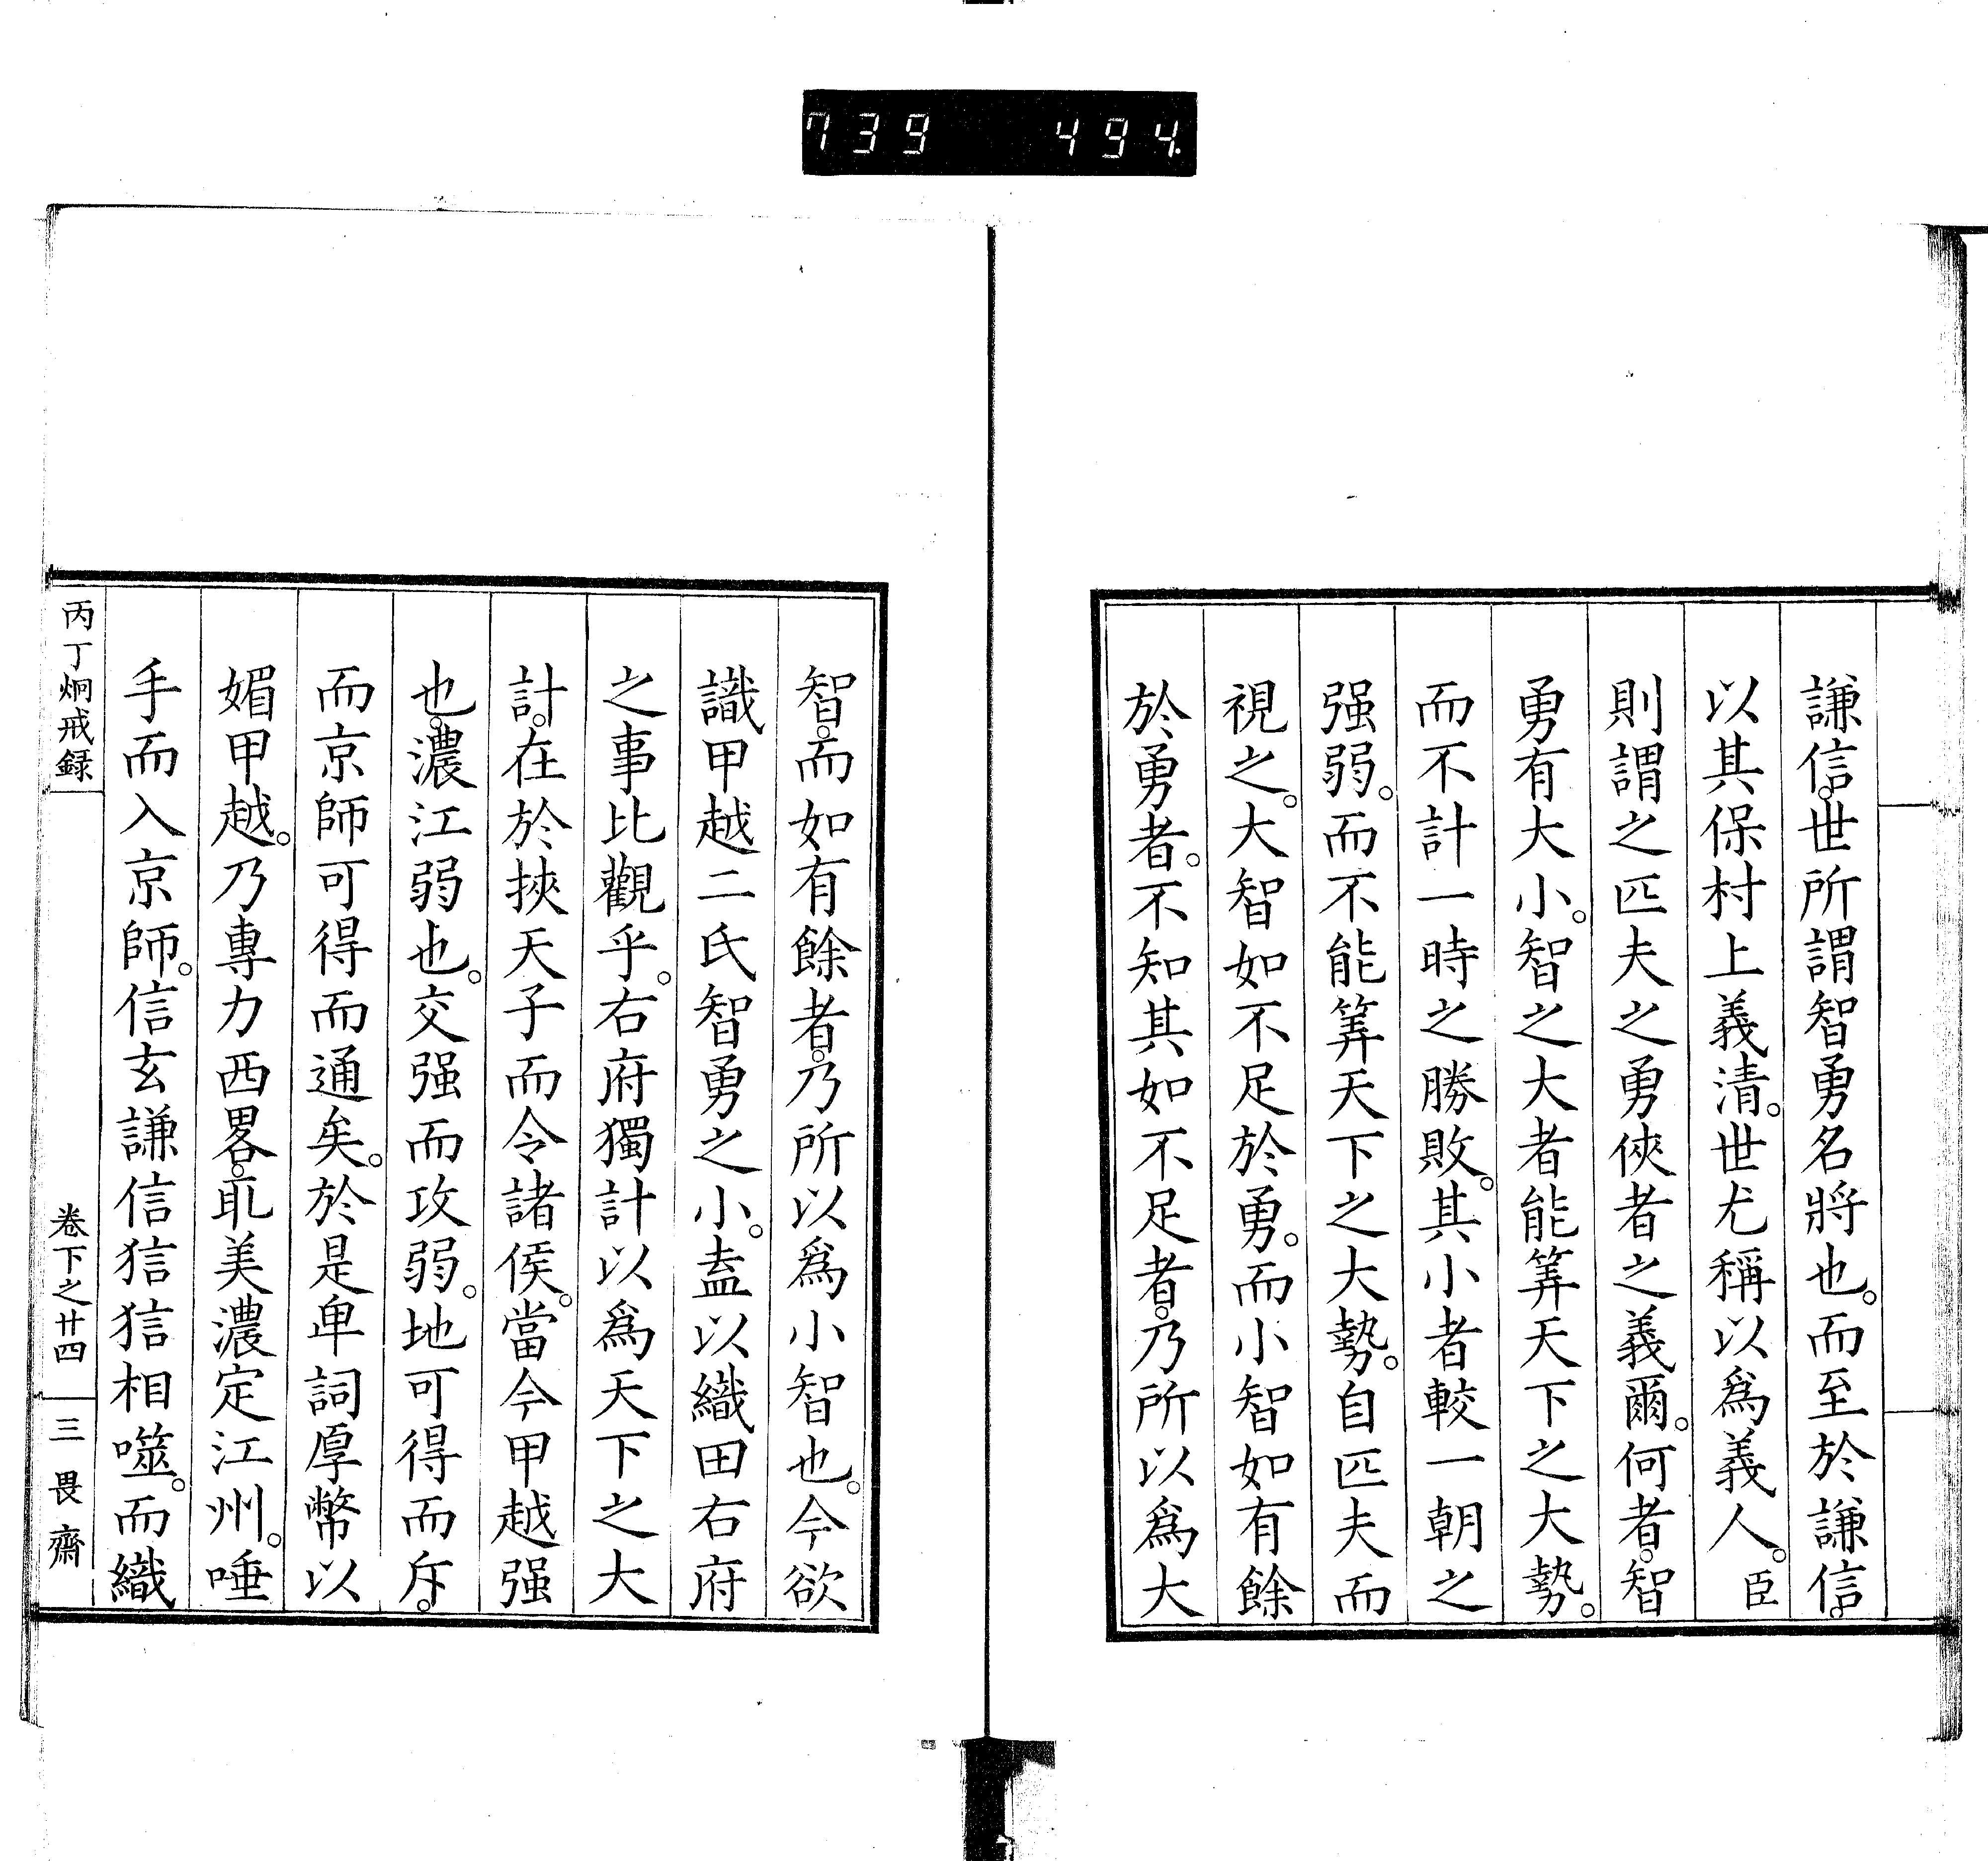 739 494.
謙信。世所謂智勇名將也。而至於謙信。
以其保村上義清。世尤稱以爲義人。臣
則謂之匹夫之勇俠者之義爾。何者。智
勇有大小。智之大者能筭天下之大勢。
而不計一時之勝敗。其小者較一朝之
强弱。而不能筭天下之大勢。自匹夫而
視之。大智如不足於勇。而小智如有餘
於勇者。不知其如不足者。乃所以爲大
智。而如有餘者。乃所以爲小智也。今欲
識甲越二氏智勇之小。盍以織田右府
之事比觀乎。右府獨計以爲天下之大
計。在於挾天子而令諸侯。當今甲越强
也。濃江弱也。交强而攻弱。地可得而斥。
而京師可得而通矣。於是卑詞厚幣以
媚甲越。乃專力西畧。取美濃定江州。唾
手而入京師。信玄謙信狺狺相噬。而織
丙丁炯戒録
卷下之廿四
三畏齋